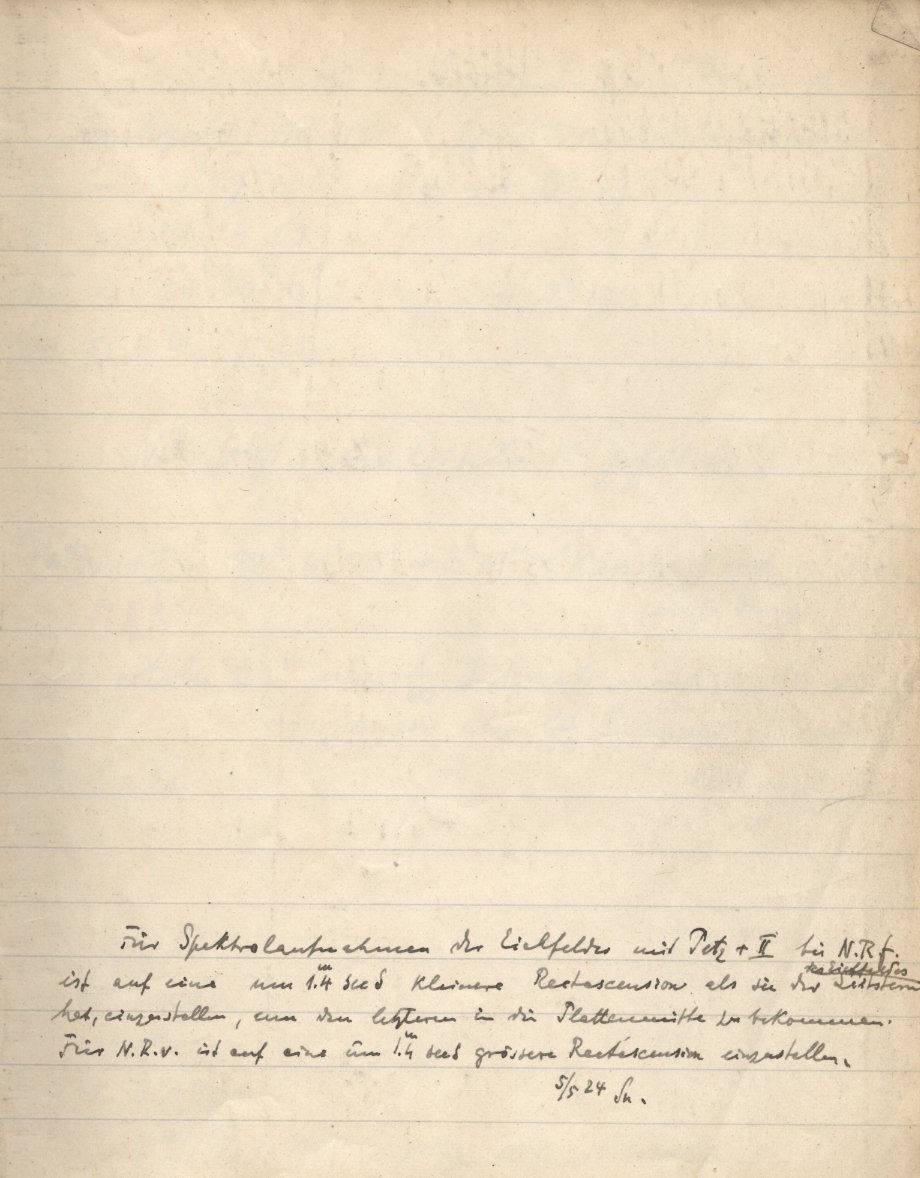 Für Spektralaufnahmen des Eichfeldes mit Petz + II bei N.R.f.
ist auf eine um 1.4ᵐ kleinere Rectascension als sie der Leitstern
hat, einzustellen, um den letzteren in die Plattenmitte zu bekommen.
Für N.R.v. ist auf eine um 1.4ᵐ grössere Rectascension einzustellen.
5/5 24 Sn.